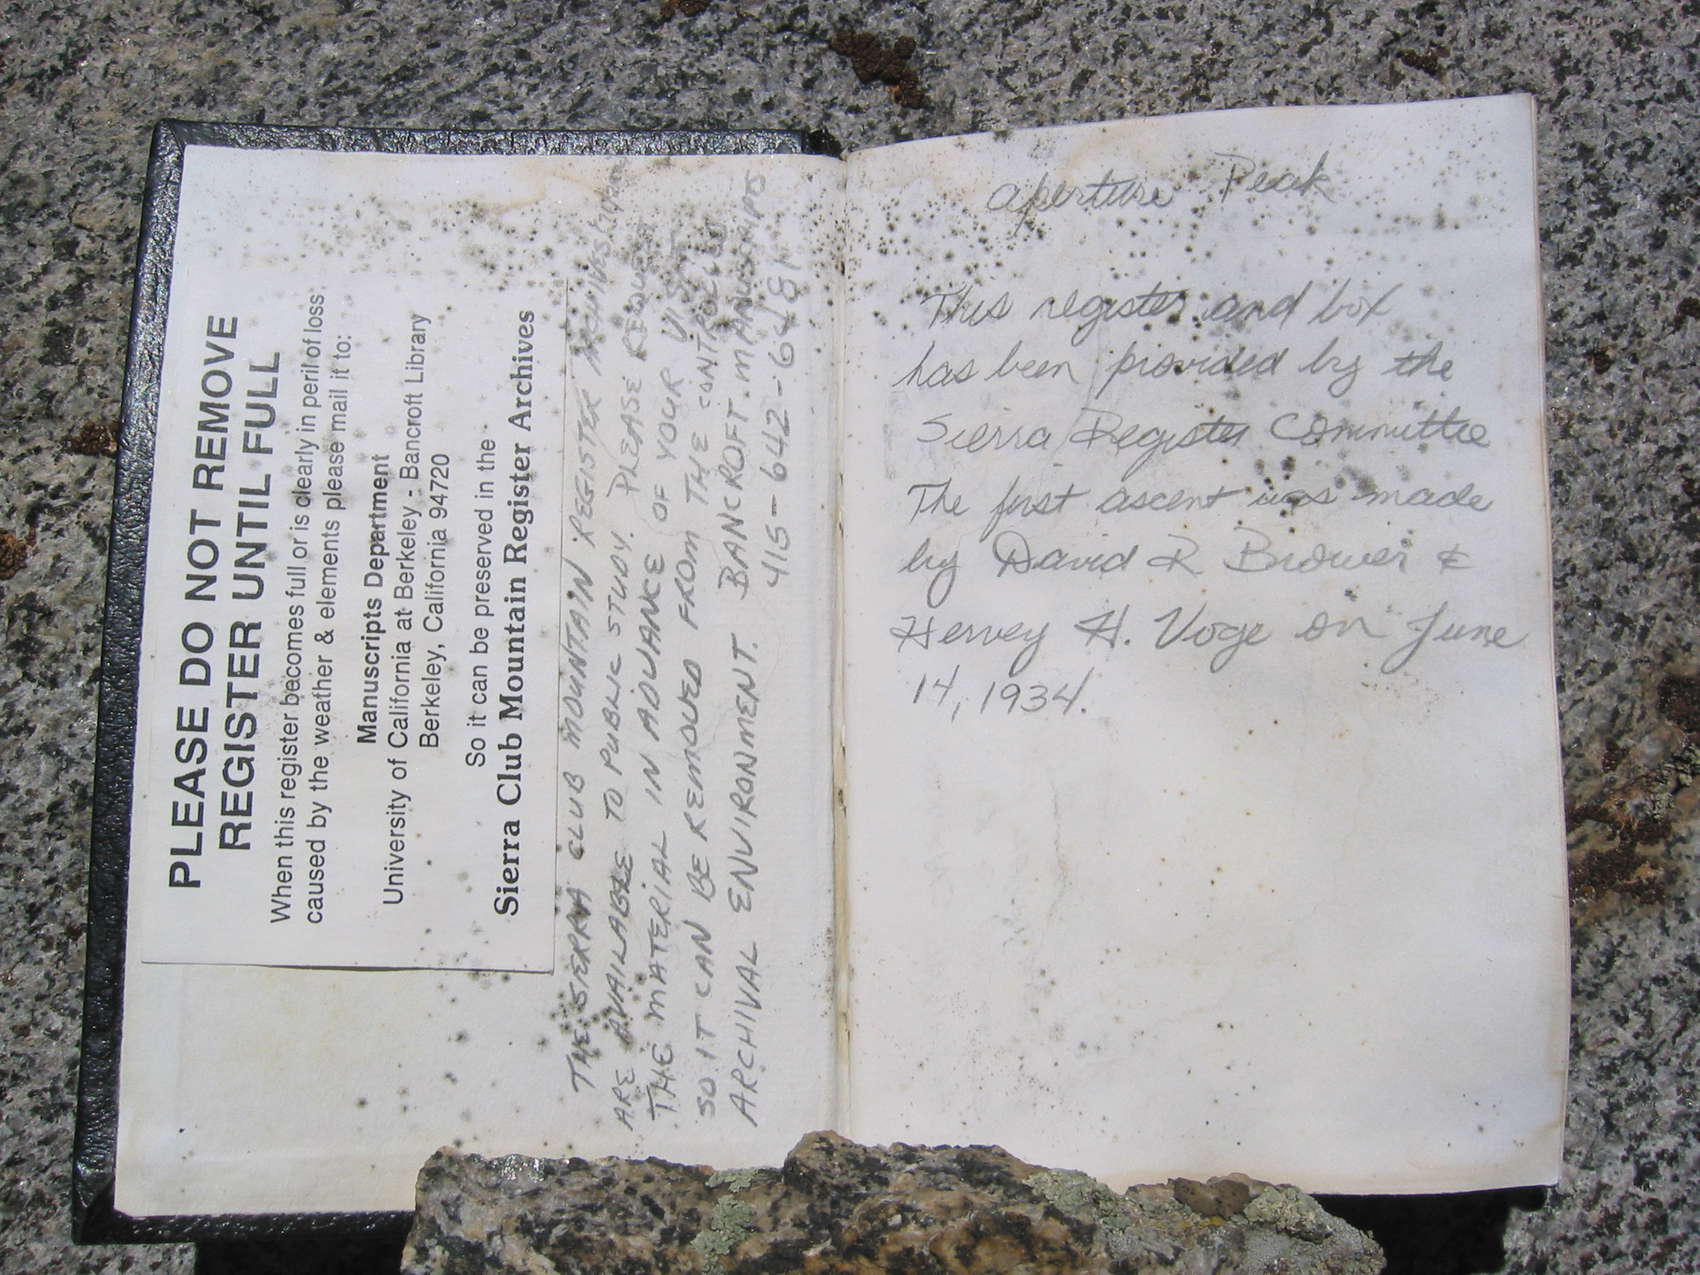 PLEASE DO NOT REMOVE
REGISTER UNTIL FULL
When this register becomes full or is clearly in peril of loss
caused by the weather & elements please mail it to:
Manuscripts Department
University of California at Berkeley - Bancroft Library
Berkeley, California 94720
So it can be preserved in the
Sierra Club Mountain Register Archives
THE SIERRA CLUB MOUNTAIN REGISTER ARCHIVES
ARE AVAILABLE TO PUBLIC STUDY. PLEASE REQUEST
THE MATERIAL IN ADVANCE OF YOUR VISIT
SO IT CAN BE REMOVED FROM THE CONTROLLED
ARCHIVAL ENVIRONMENT. BANCROFT MANUSCRIPTS
415-642-6481
Aperture Peak
This register and box
has been provided by the
Sierra Register Committee
The first ascent was made
by David R Brower &
Hervey H. Voge on June
14, 1934.